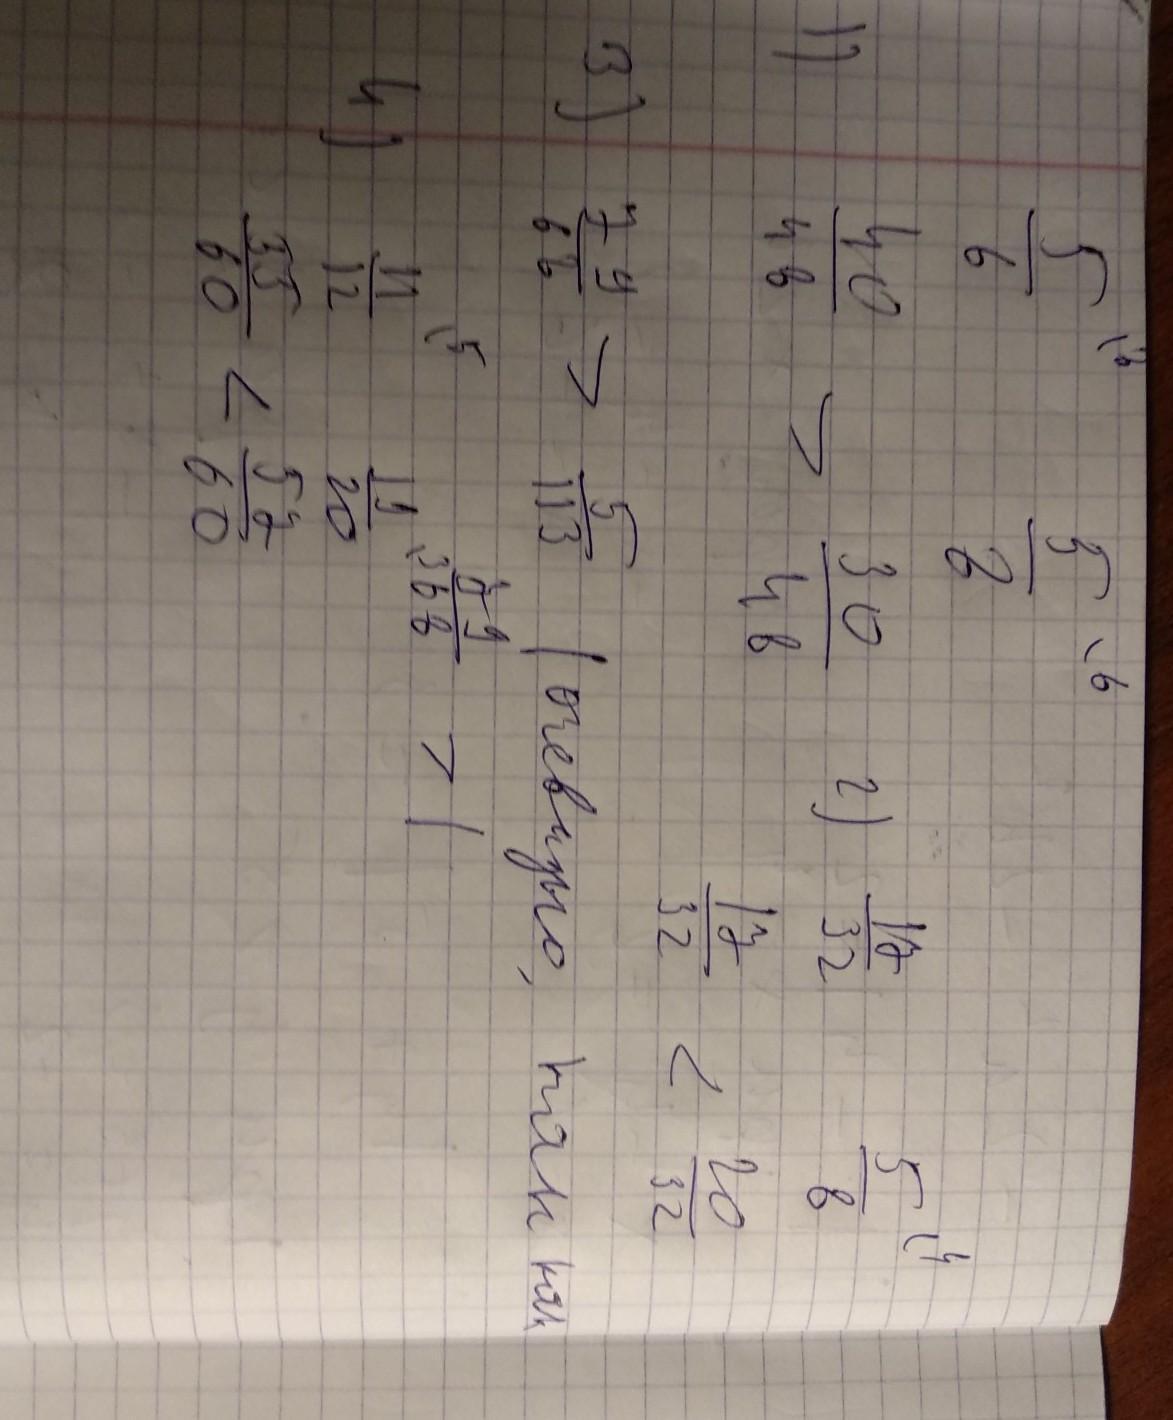 5/6 \8 5/8 \6
1) 40/48 > 30/48 2) 17/32 5/8 \4
17/32 < 20/32
3) 79/68 > 5/113 (очевидно, так как
79/68 > 1)
4) 11/12 \5 19/20 \3
55/60 < 57/60